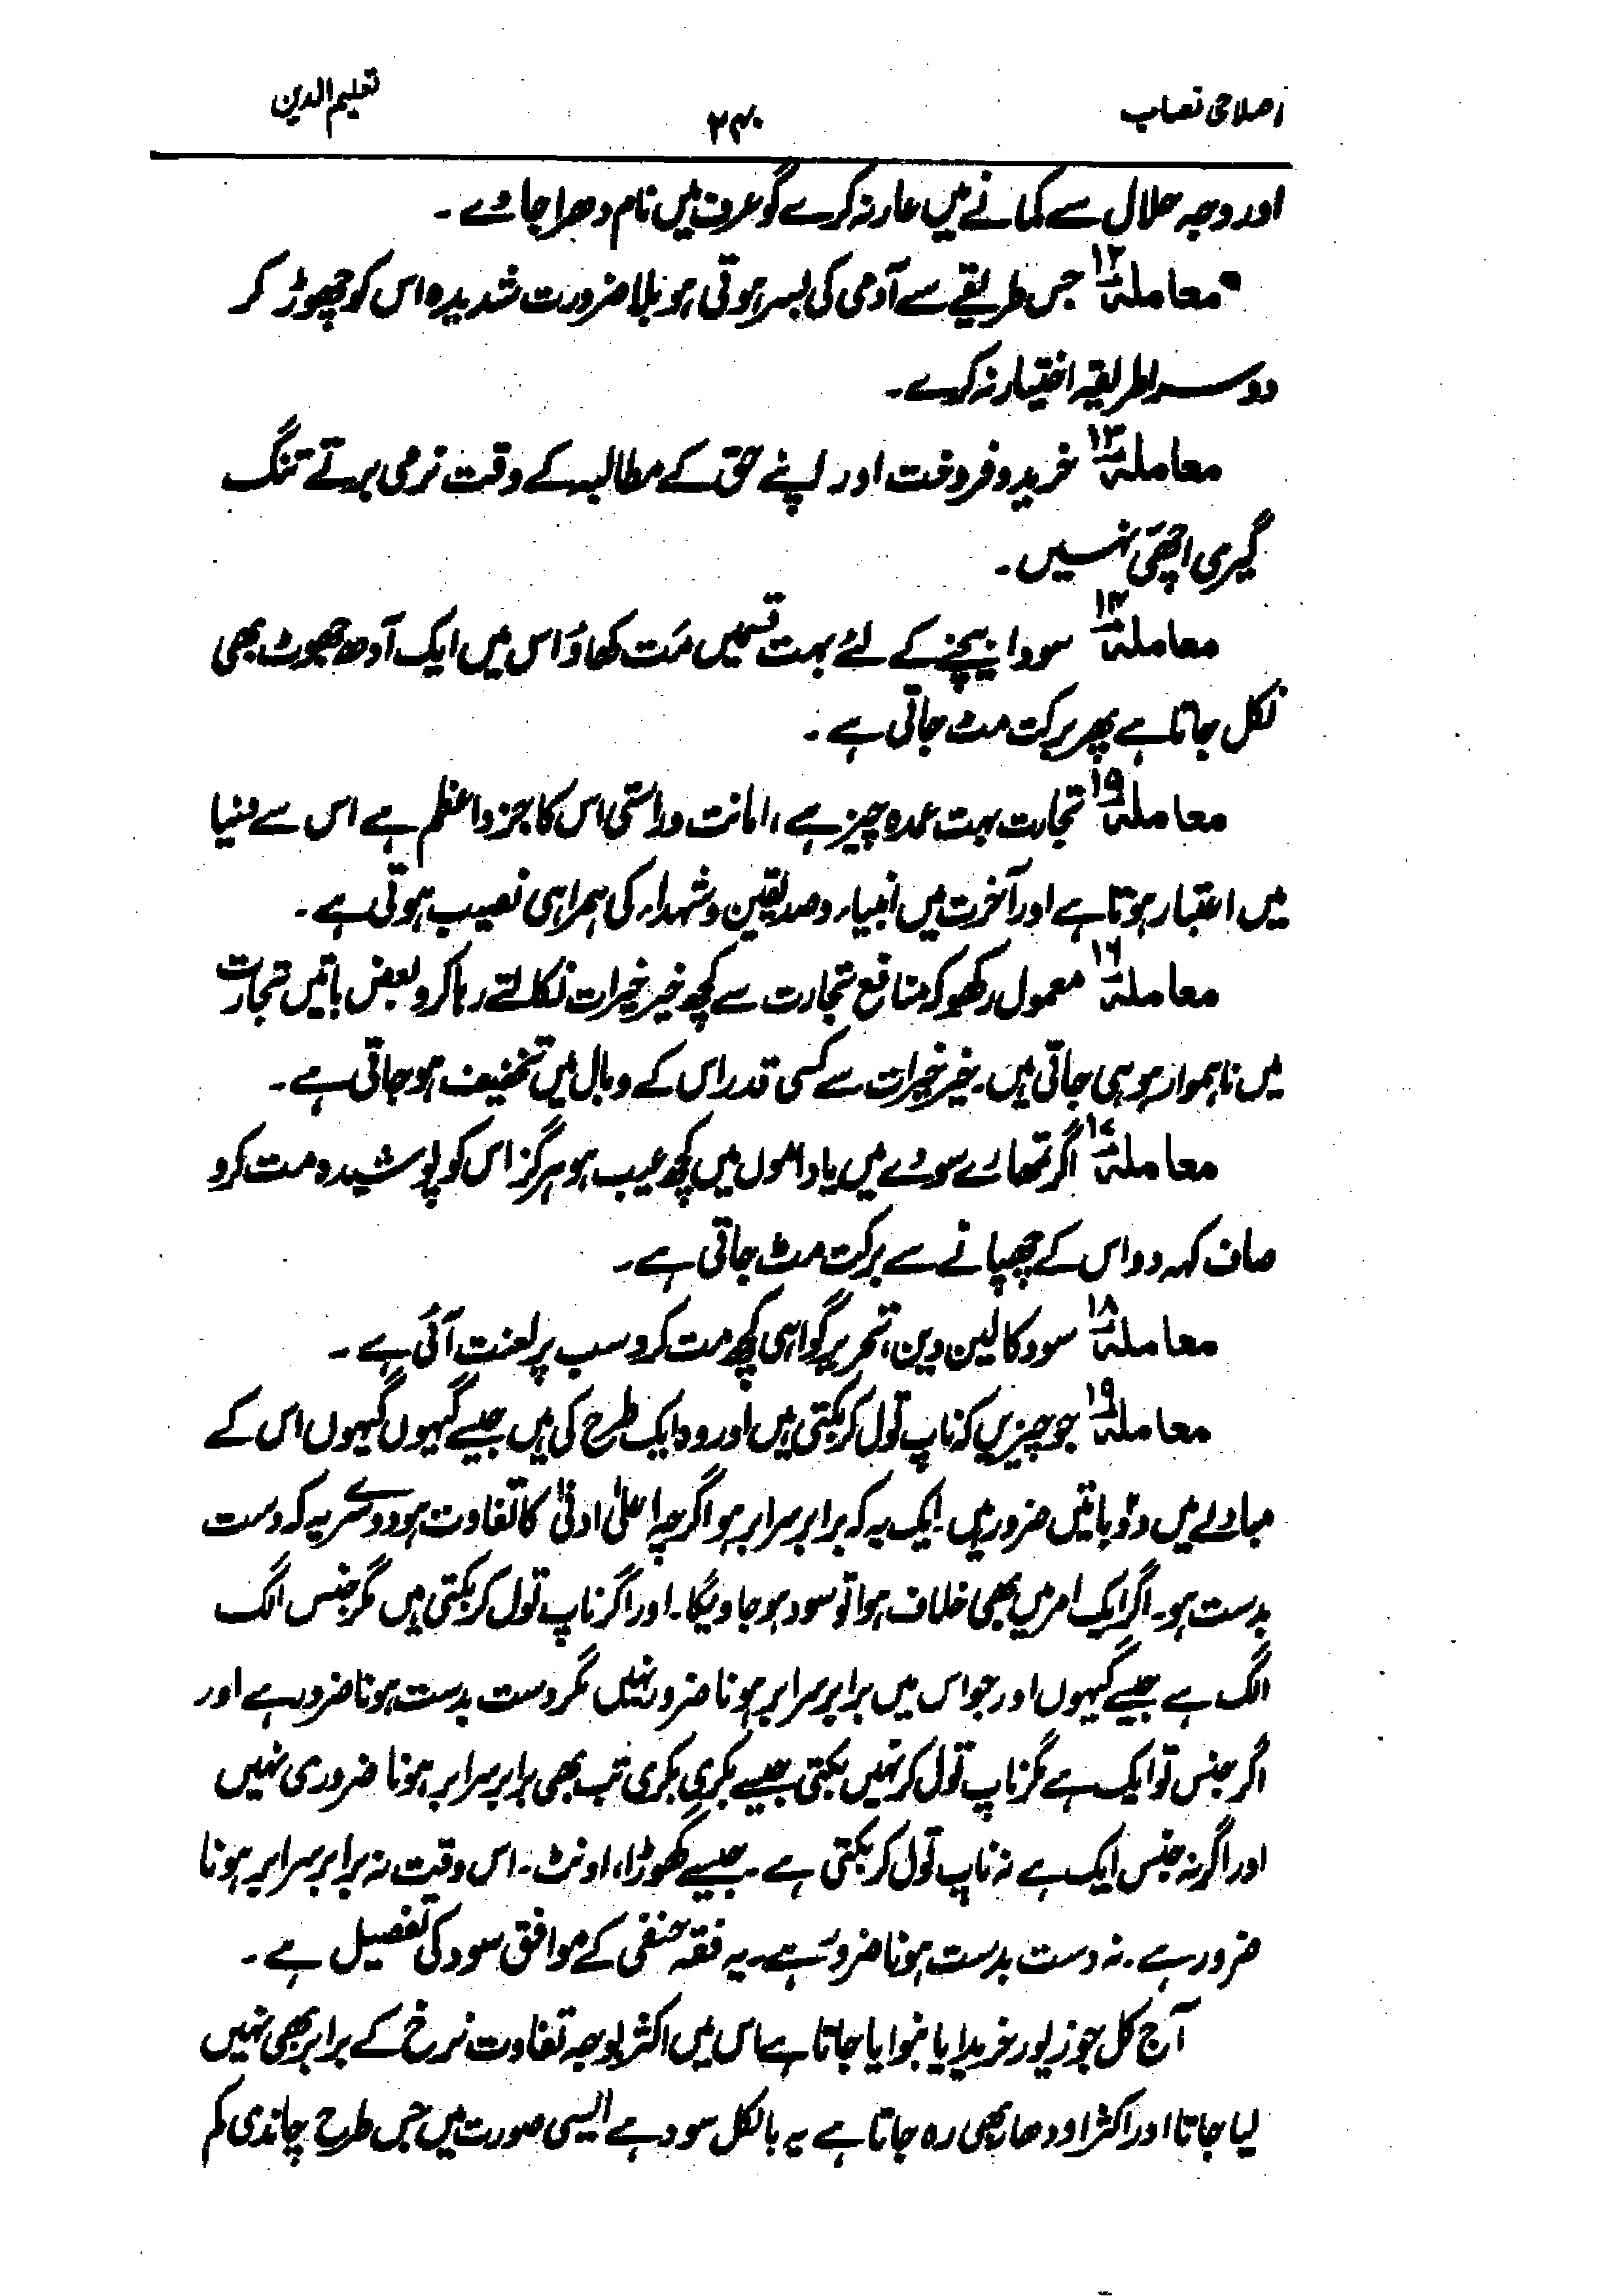 اصلاحی نصاب ۲۴۰ تعلیم الدین
اور وجہ حلال سے کمانے میں عار نہ کرے گو عرف میں نام دھرا جاوے۔
معاملہ ۱۲ جس طریقے سے آدمی کی بسر ہوتی ہو بلا ضرورت شدیدہ اس کو چھوڑ کر
دوسرا طریقہ اختیار نہ کرے۔
معاملہ ۱۳ خرید و فروخت اور اپنے حق کے مطالبہ کے وقت نرمی برتے تنگ
گیری اچھی نہیں۔
معاملہ ۱۴ سودا بیچنے کے لئے بہت قسمیں مَت کھاؤ اس میں ایک آدھ جھوٹ بھی
نکل جاتا ہے پھر برکت مٹ جاتی ہے۔
معاملہ ۱۵ تجارت بہت عمدہ چیز ہے، امانت و راستی اس کا جزو اعظم ہے اس سے دنیا
میں اعتبار ہوتا ہے اور آخرت میں انبیاء و صدیقین و شہداء کی ہمراہی نصیب ہوتی ہے۔
معاملہ ۱۶ معمول رکھو کہ منافع تجارت سے کچھ خیر خیرات نکالتے رہا کرو بعض باتیں تجارت
میں ناہموار ہو ہی جاتی ہیں۔ خیر خیرات سے کسی قدر اس کے وبال میں تخفیف ہو جاتی ہے۔
معاملہ ۱۷ اگر تمھارے سودے میں یا داموں میں کچھ عیب ہو ہرگز اس کو پوشیدہ مت کرو
صاف کہہ دو اس کے چھپانے سے برکت مٹ جاتی ہے۔
معاملہ ۱۸ سود کا لین دین، تحریر گواہی کچھ مت کرو سب پر لعنت آئی ہے۔
معاملہ ۱۹ جو چیزیں کہ ناپ تول کر بکتی ہیں اور وہ ایک طرح کی ہیں جیسے گیہوں گیہوں اس کے
مبادلے میں دو باتیں ضرور ہیں۔ ایک یہ کہ برابر سرابر ہو اگرچہ اعلیٰ ادنیٰ کا تفاوت ہو دوسرے یہ کہ دست
بدست ہو۔ اگر ایک امر میں بھی خلاف ہوا تو سود ہو جاویگا۔ اور اگر ناپ تول کر بکتی ہیں مگر جنس الگ
الگ ہے جیسے گیہوں اور جو اس میں برابر سرابر ہونا ضرور نہیں مگر دست بدست ہونا ضرور ہے اور
اگر جنس تو ایک ہے مگر ناپ تول کر نہیں بکتی جیسے بکری بکری تب بھی برابر سرابر ہونا ضروری نہیں
اور اگر نہ جنس ایک ہے نہ ناپ تول کر بکتی ہے۔ جیسے گھوڑا، اونٹ۔ اس وقت نہ برابر سرابر ہونا
ضرور ہے۔ نہ دست بدست ہونا ضرور ہے۔ یہ فقہ حنفی کے موافق سود کی تفصیل ہے۔
آج کل جو زیور خریدا یا بنوایا جاتا ہے اس میں اکثر بوجہ تفاوت نرخ کے برابر بھی نہیں
لیا جاتا اور اکثر اودھار بھی رہ جاتا ہے یہ بالکل سود ہے ایسی صورت میں جس طرح چاندی کم